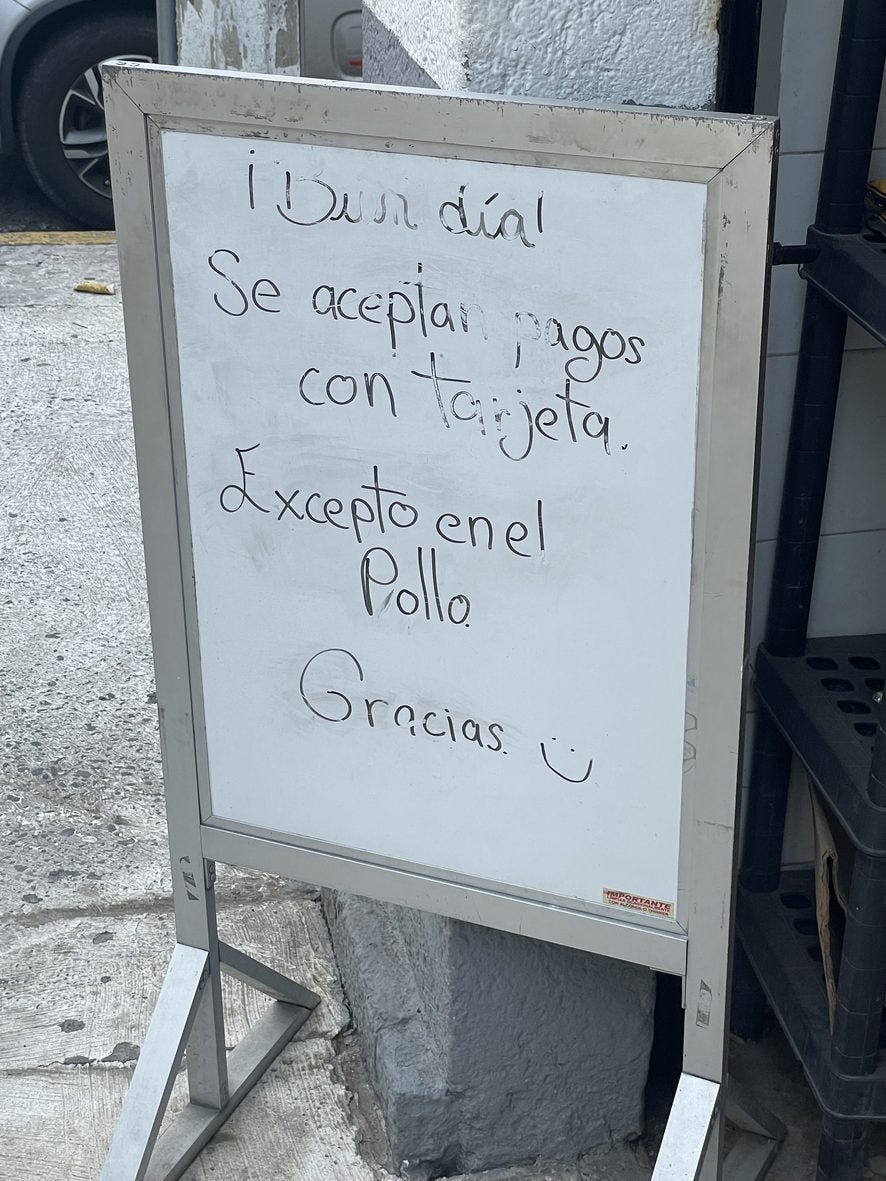 ¡Buen día!
Se aceptan pagos
con tarjeta.
Excepto en el
Pollo.
Gracias. :)
IMPORTANTE